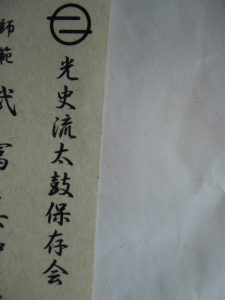 光史流太鼓保存会
師範